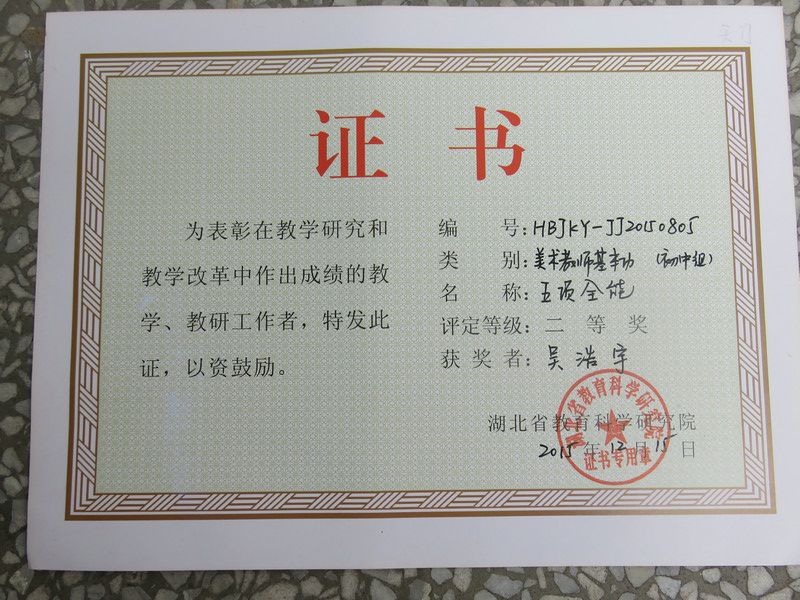 证 书
为表彰在教学研究和
教学改革中作出成绩的教
学、教研工作者，特发此
证，以资鼓励。
编 号：HBJKY-JJ20150805
类 别：美术教师基本功（初中组）
名 称：五项全能
评定等级：二 等 奖
获 奖 者：吴浩宇
湖北省教育科学研究院
2015年12月15日
湖北省教育科学研究院
证书专用章